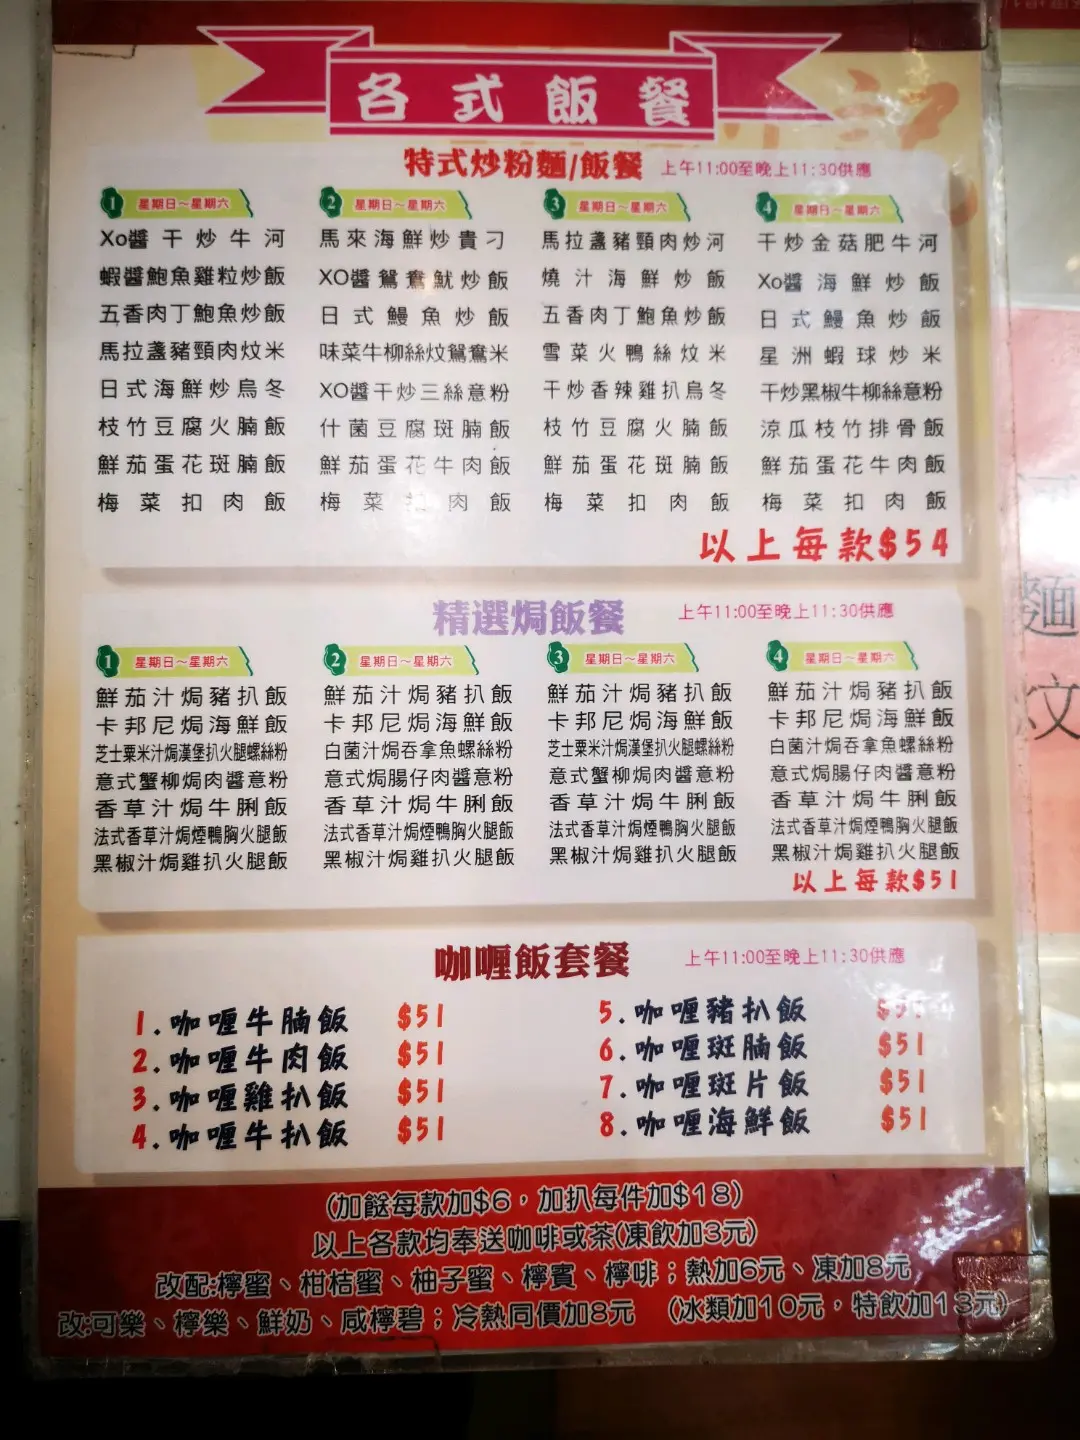 各式飯餐
特式炒粉麵/飯餐 上午11:00至晚上11:30供應
1 星期日～星期六
Xo醬干炒牛河
蝦醬鮑魚雞粒炒飯
五香肉丁鮑魚炒飯
馬拉盞豬頸肉炆米
日式海鮮炒烏冬
枝竹豆腐火腩飯
鮮茄蛋花斑腩飯
梅菜扣肉飯
2 星期日～星期六
馬來海鮮炒貴刁
XO醬鴛鴦魷炒飯
日式鰻魚炒飯
味菜牛柳絲炆鴛鴦米
XO醬干炒三絲意粉
什菌豆腐斑腩飯
鮮茄蛋花牛肉飯
梅菜扣肉飯
3 星期日～星期六
馬拉盞豬頸肉炒河
燒汁海鮮炒飯
五香肉丁鮑魚炒飯
雪菜火鴨絲炆米
干炒香辣雞扒烏冬
枝竹豆腐火腩飯
鮮茄蛋花斑腩飯
梅菜扣肉飯
4 星期日～星期六
干炒金菇肥牛河
Xo醬海鮮炒飯
日式鰻魚炒飯
星洲蝦球炒米
干炒黑椒牛柳絲意粉
涼瓜枝竹排骨飯
鮮茄蛋花牛肉飯
梅菜扣肉飯
以上每款$54
精選焗飯餐 上午11:00至晚上11:30供應
1 星期日～星期六
鮮茄汁焗豬扒飯
卡邦尼焗海鮮飯
芝士粟米汁焗漢堡扒火腿螺絲粉
意式蟹柳焗肉醬意粉
香草汁焗牛脷飯
法式香草汁焗煙鴨胸火腿飯
黑椒汁焗雞扒火腿飯
2 星期日～星期六
鮮茄汁焗豬扒飯
卡邦尼焗海鮮飯
白菌汁焗吞拿魚螺絲粉
意式焗腸仔肉醬意粉
香草汁焗牛脷飯
法式香草汁焗煙鴨胸火腿飯
黑椒汁焗雞扒火腿飯
3 星期日～星期六
鮮茄汁焗豬扒飯
卡邦尼焗海鮮飯
芝士粟米汁焗漢堡扒火腿螺絲粉
意式蟹柳焗肉醬意粉
香草汁焗牛脷飯
法式香草汁焗煙鴨胸火腿飯
黑椒汁焗雞扒火腿飯
4 星期日～星期六
鮮茄汁焗豬扒飯
卡邦尼焗海鮮飯
白菌汁焗吞拿魚螺絲粉
意式焗腸仔肉醬意粉
香草汁焗牛脷飯
法式香草汁焗煙鴨胸火腿飯
黑椒汁焗雞扒火腿飯
以上每款$51
咖喱飯套餐 上午11:00至晚上11:30供應
1.咖喱牛腩飯 $51
2.咖喱牛肉飯 $51
3.咖喱雞扒飯 $51
4.咖喱牛扒飯 $51
5.咖喱豬扒飯
6.咖喱斑腩飯 $51
7.咖喱斑片飯 $51
8.咖喱海鮮飯 $51
(加餸每款加$6，加扒每件加$18)
以上各款均奉送咖啡或茶(凍飲加3元)
改配:檸蜜、柑桔蜜、柚子蜜、檸賓、檸啡；熱加6元、凍加8元
改:可樂、檸樂、鮮奶、咸檸碧；冷熱同價加8元 (冰類加10元，特飲加13元)
麵
炆